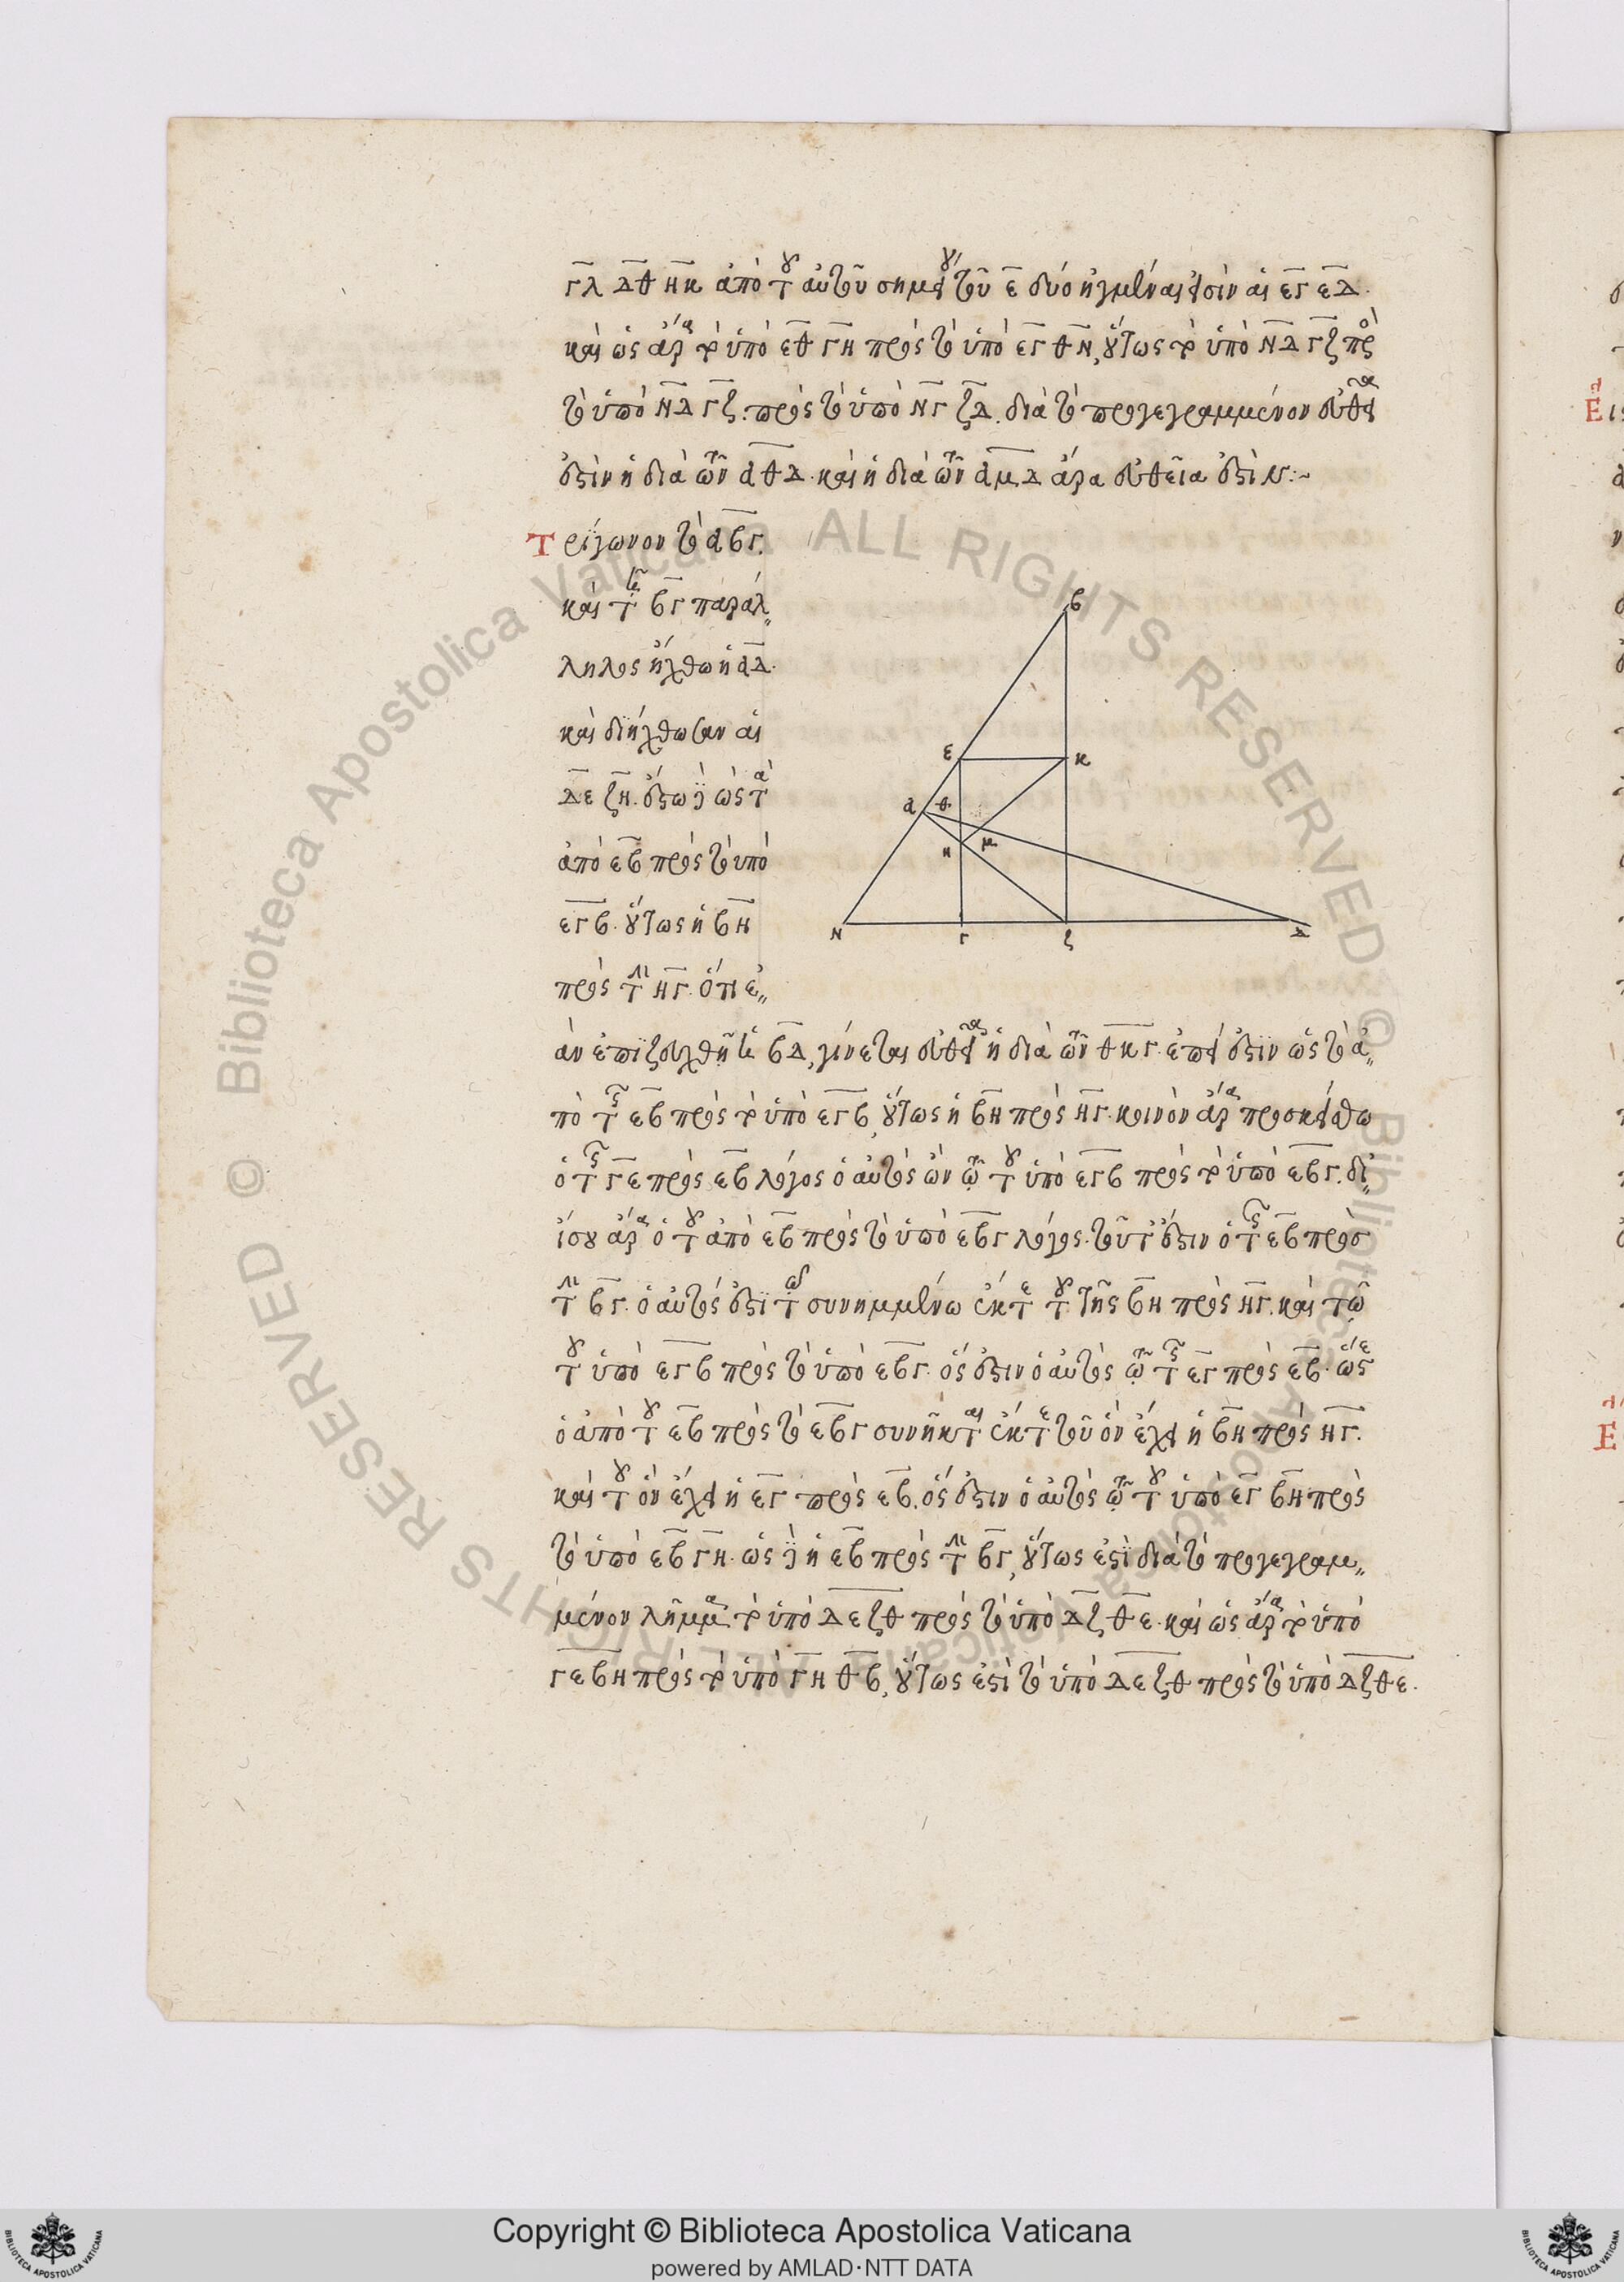 ΓΛ ΔΘ ΗΚ ἀπὸ τοῦ αὐτοῦ σημείου τοῦ Ε δύο ἠγμέναι εἰσὶν αἱ ΕΓ ΕΔ.
καὶ ὡς ἄρα τὸ ὑπὸ ΕΘ ΓΗ πρὸς τὸ ὑπὸ ΕΓ ΘΗ, οὕτως τὸ ὑπὸ ΝΔ ΓΖ πρὸς
τὸ ὑπὸ ΝΔ ΓΖ. πρὸς τὸ ὑπὸ ΝΓ ΖΔ. διὰ τὸ προγεγραμμένον εὐθεῖα
ἐστὶν ἡ διὰ τῶν ΑΘΔ. καὶ ἡ διὰ τῶν ΑΜΔ ἄρα εὐθεῖα ἐστὶν:~
Τρίγωνον τὸ ΑΒΓ.
καὶ τῇ ΒΓ παράλ
ληλος ἤχθω ἡ ΑΔ.
καὶ διήχθωσαν αἱ
ΔΕ ΖΗ. ἔστω δὲ ὡς τὸ
ἀπὸ ΕΒ πρὸς τὸ ὑπὸ
ΕΓΒ. οὕτως ἡ ΒΗ
πρὸς τὴν ΗΓ. ὅτι ἐ
ὰν ἐπιζευχθῇ ἡ ΒΔ, γίνεται εὐθεῖα ἡ διὰ τῶν ΘΚΓ. ἐπεί ἐστιν ὡς τὸ ἀ
πὸ τῆς ΕΒ πρὸς τὸ ὑπὸ ΕΓΒ, οὕτως ἡ ΒΗ πρὸς ΗΓ. κοινὸν ἄρα προσκείσθω
ὁ τῆς ΓΕ πρὸς ΕΒ λόγος ὁ αὐτὸς ὢν τῷ τοῦ ὑπὸ ΕΓΒ πρὸς τὸ ὑπὸ ΕΒΓ. δι
ἴσου ἄρα ὁ τοῦ ἀπὸ ΕΒ πρὸς τὸ ὑπὸ ΕΒΓ λόγος. τουτέστιν ὁ τῆς ΕΒ πρὸς
τὴν ΒΓ. ὁ αὐτός ἐστι τῷ συνημμένω ἔκ τε τοῦ τῆς ΒΗ πρὸς ΗΓ. καὶ τῷ
τοῦ ὑπὸ ΕΓΒ πρὸς τὸ ὑπὸ ΕΒΓ. ὅς ἐστιν ὁ αὐτὸς τῷ τῆς ΕΓ πρὸς ΕΒ. ὥστε
ὁ ἀπὸ τοῦ ΕΒ πρὸς τὸ ΕΒΓ συνῆκται ἔκ τε τοῦ ὃν ἔχει ἡ ΒΗ πρὸς ΗΓ.
καὶ τοῦ ὃν ἔχει ἡ ΕΓ πρὸς ΕΒ. ὅς ἐστιν ὁ αὐτὸς τῷ τοῦ ὑπὸ ΕΓ ΒΗ πρὸς
τὸ ὑπὸ ΕΒ ΓΗ. ὡς δὲ ἡ ΕΒ πρὸς τὴν ΒΓ, οὕτως ἐστὶ διὰ τὸ προγεγραμ
μένον λῆμμα τὸ ὑπὸ ΔΕΖΘ πρὸς τὸ ὑπὸ ΔΖ ΘΕ. καὶ ὡς ἄρα τὸ ὑπὸ
ΓΕ ΒΗ πρὸς τὸ ὑπὸ ΓΗ ΘΒ, οὕτως ἐστὶ τὸ ὑπὸ ΔΕΖΘ πρὸς τὸ ὑπὸ ΔΖΘΕ.
Β
Ε
Κ
Α
Θ
Η
Μ
Ν
Γ
Ζ
Δ
Copyright © Biblioteca Apostolica Vaticana
powered by AMLAD·NTT DATA